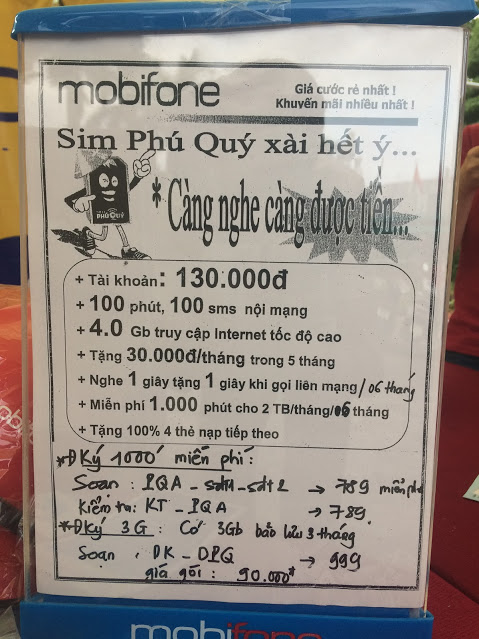 mobifone
Giá cước rẻ nhất !
Khuyến mãi nhiều nhất !
Sim Phú Quý xài hết ý...
PHÚ QUÝ
* Càng nghe càng được tiền...
+ Tài khoản: 130.000đ
+ 100 phút, 100 sms nội mạng
+ 4.0 Gb truy cập Internet tốc độ cao
+ Tặng 30.000đ/tháng trong 5 tháng
+ Nghe 1 giây tặng 1 giây khi gọi liên mạng / 06 tháng
+ Miễn phí 1.000 phút cho 2 TB/tháng/06 tháng
+ Tặng 100% 4 thẻ nạp tiếp theo
* ĐKý 1000' miễn phí :
Soạn : PQA - sdt1 - sdt2 → 789 miễn phí
Kiểm tra: KT - PQA → 789
* Đký 3G : Có 3Gb bảo lưu 3 tháng
Soạn : DK - DPQ → 999
giá gói : 90.000đ
mobifone